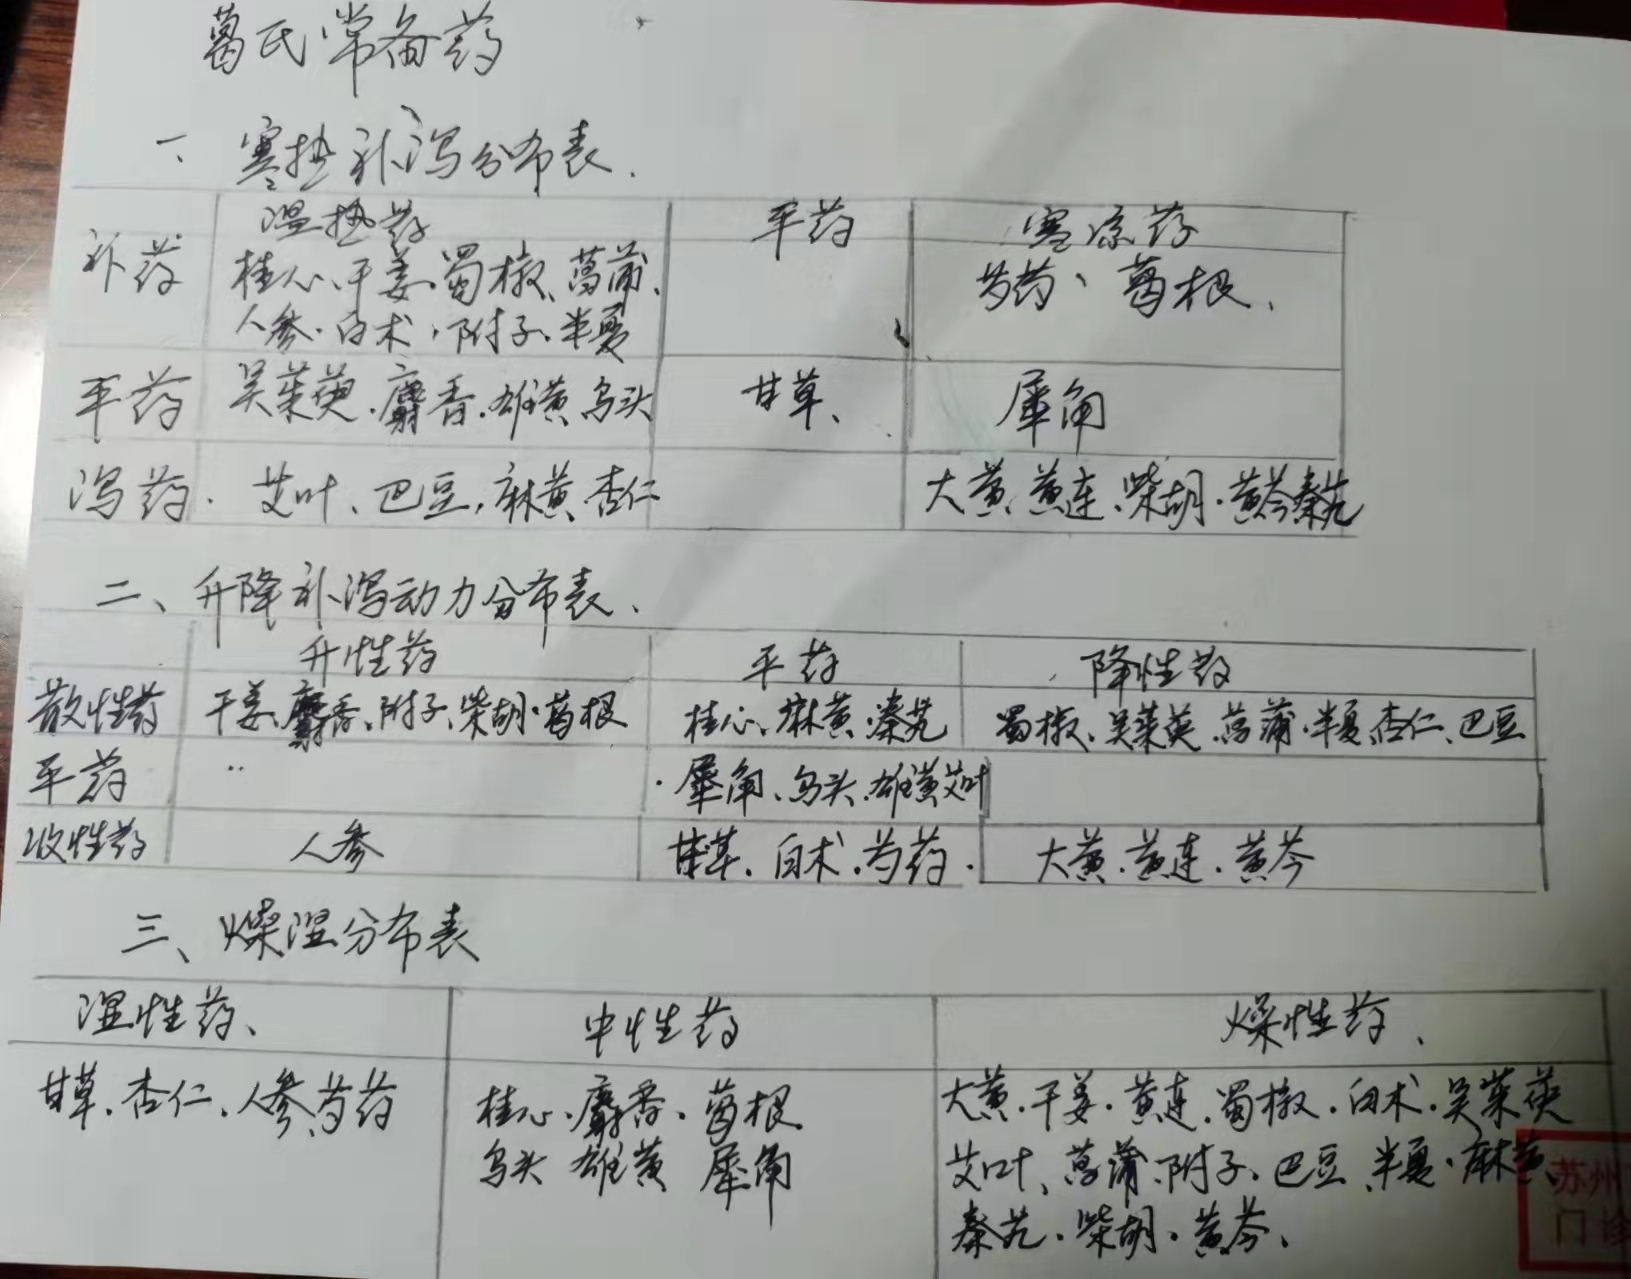 葛氏常备药
一、寒热补泻分布表.
温热药 平药 寒凉药
补药 桂心、干姜、蜀椒、菖蒲、 芍药、葛根、
人参、白术、附子、半夏
平药 吴茱萸、麝香、雄黄、乌头 甘草、 犀角
泻药. 艾叶、巴豆、麻黄、杏仁 大黄、黄连、柴胡、黄芩秦艽
二、升降补泻动力分布表、
升性药 平药 降性药
散性药 干姜、麝香、附子、柴胡、葛根 桂心、麻黄、秦艽 蜀椒、吴茱萸、菖蒲、半夏、杏仁、巴豆
平药 犀角、乌头、雄黄艾叶
收性药 人参 甘草、白术、芍药. 大黄、黄连、黄芩
三、燥湿分布表
湿性药、 中性药 燥性药、
甘草、杏仁、人参、芍药 桂心、麝香、葛根 大黄、干姜、黄连、蜀椒、白术、吴茱萸
乌头 雄黄 犀角 艾叶、菖蒲、附子、巴豆、半夏、麻黄、
秦艽、柴胡、黄芩、
苏州
门诊